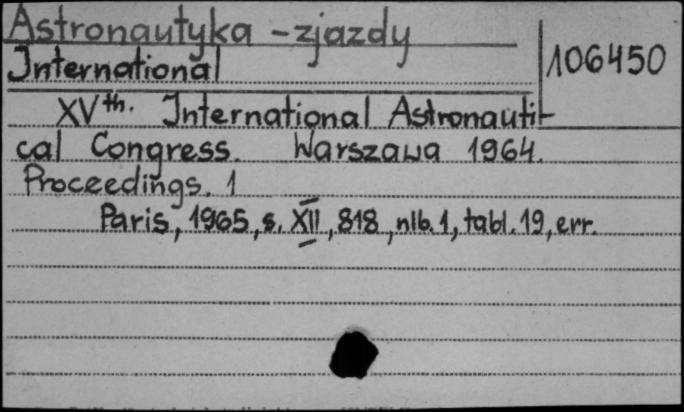 Astronautyka - zjazdy
International
106450
XVth. International Astronauti-
cal Congress. Warszawa 1964.
Proceedings. 1
Paris, 1965, s. XII, 818, nlb. 1, tabl. 19, err.